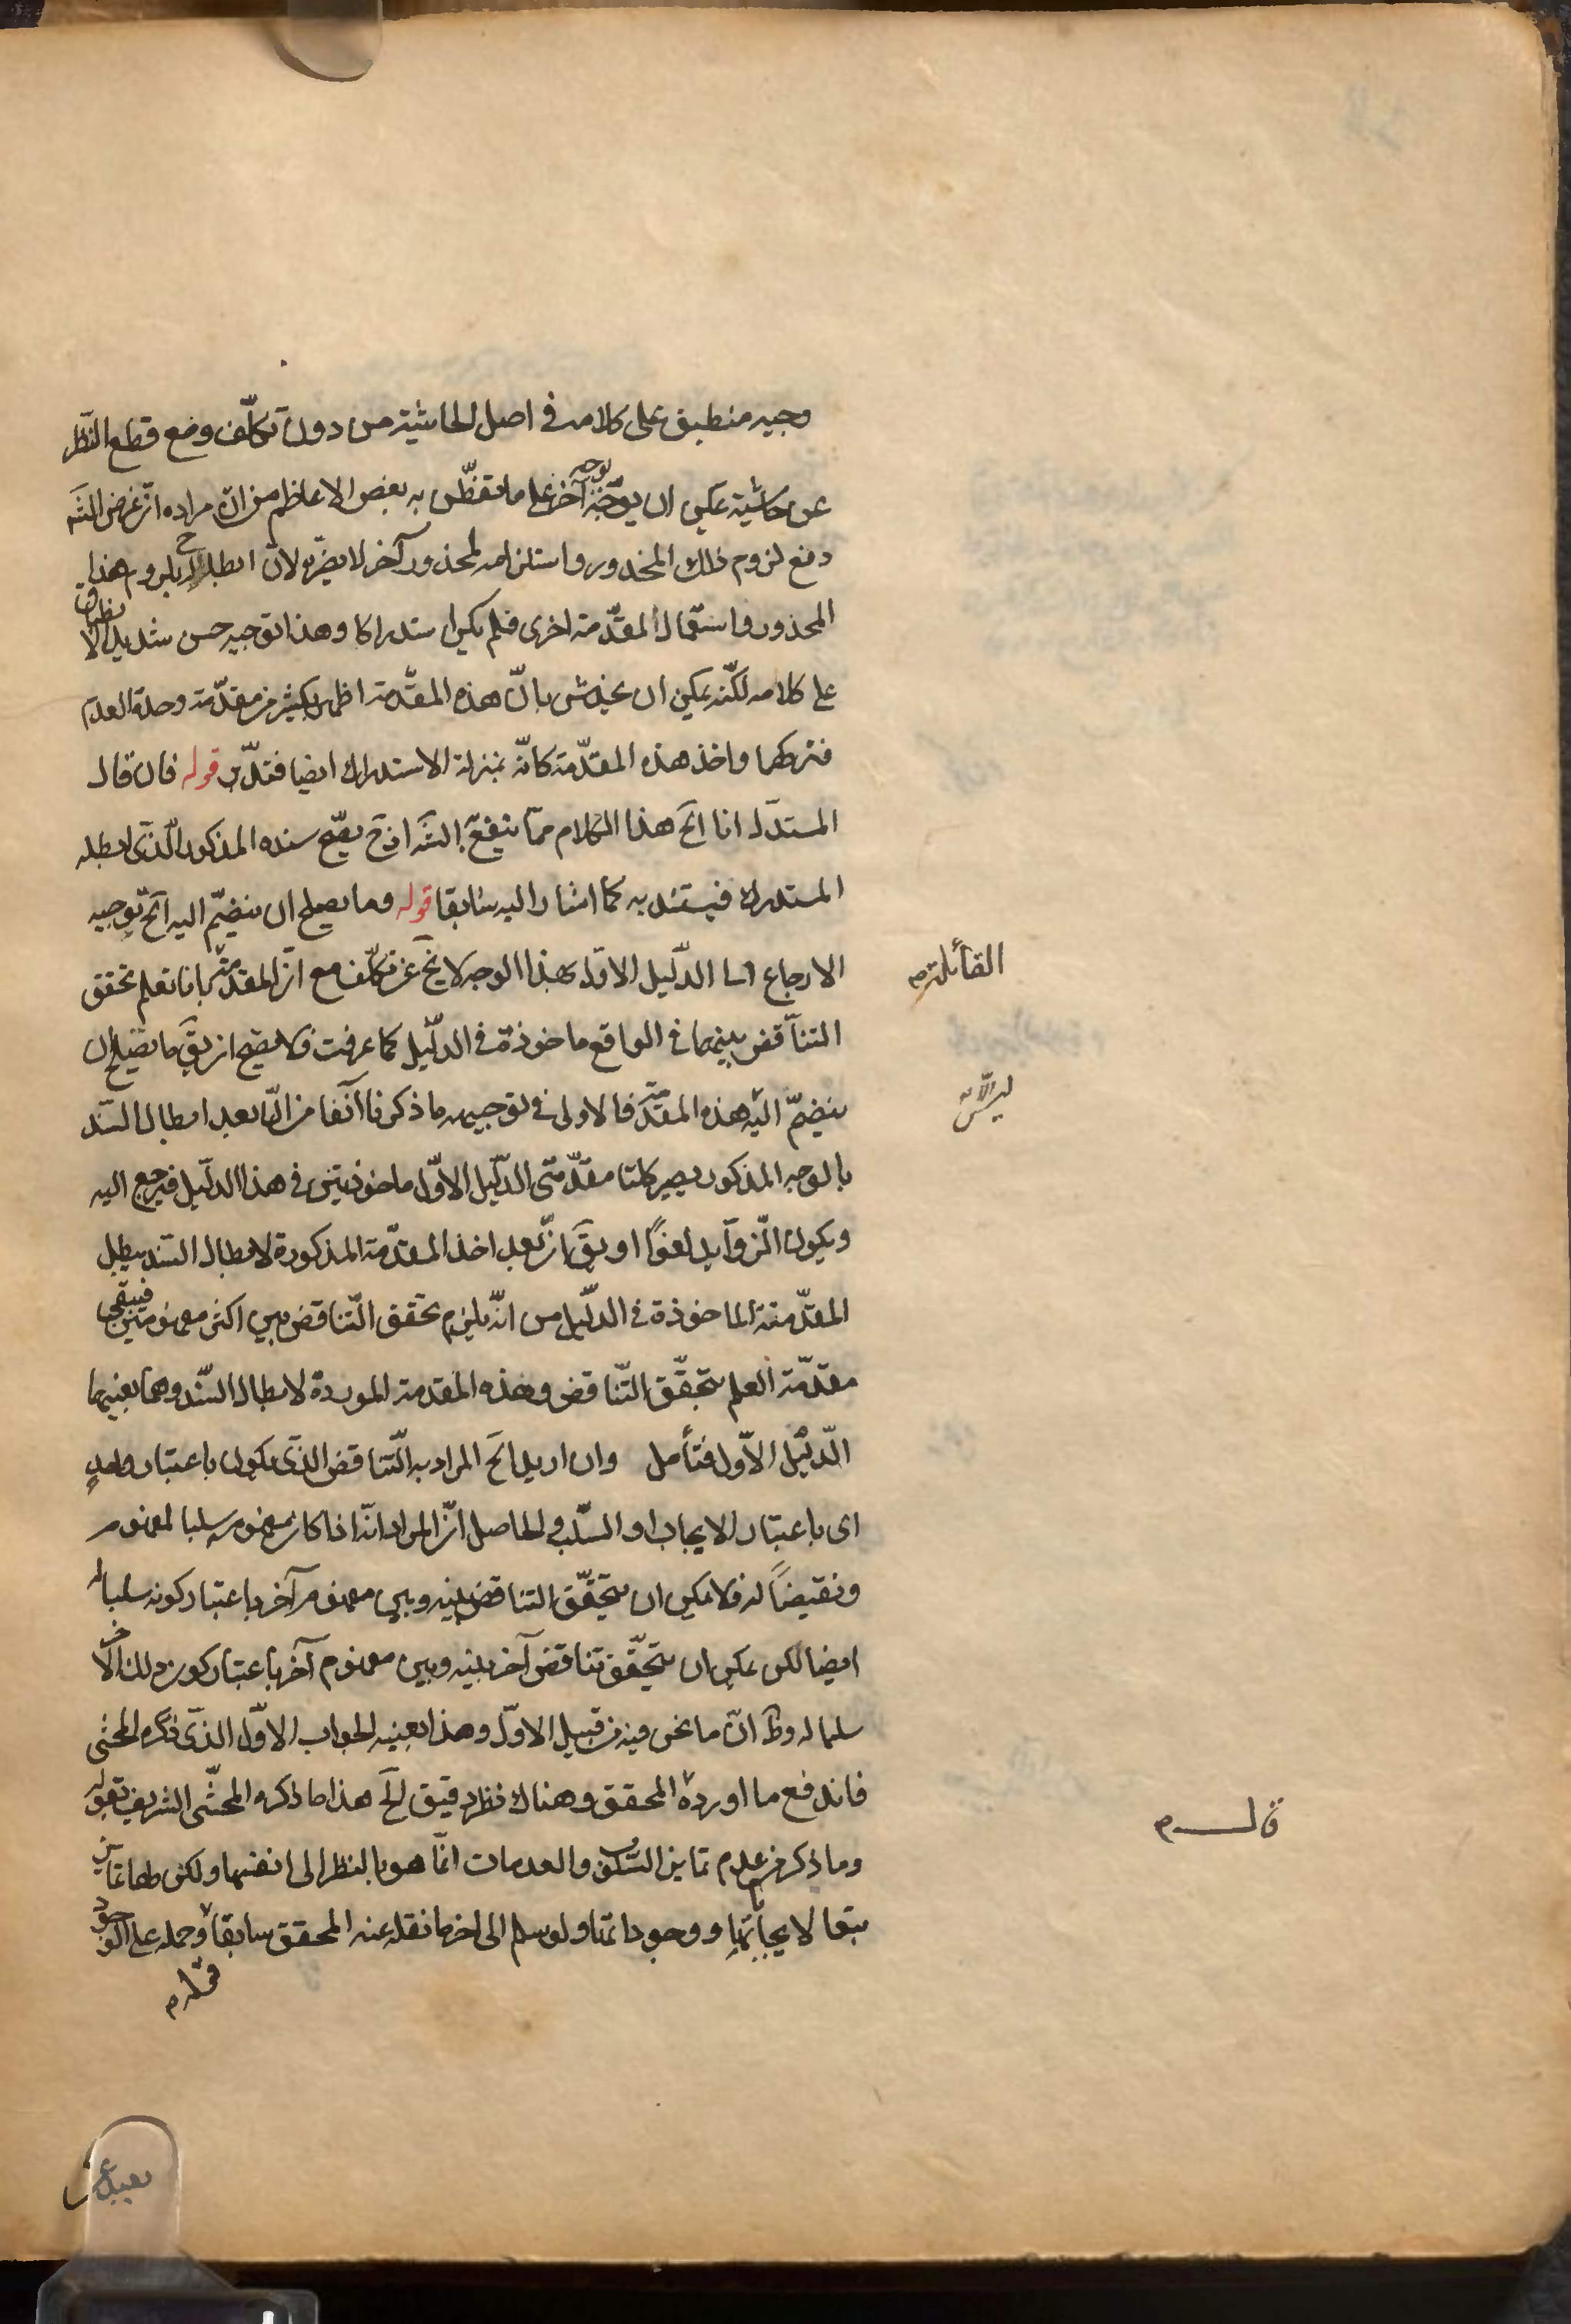 وجيه منطبق على كلامه في اصل الحاشية من دون تكلّف ومع قطع النظر
عن حاشية يمكن ان يوجّه بوجه آخر على ما تفطّن به بعض الاعاظم من انّ مراده انّ غرض الشّه
دفع لزوم ذلك المحذور واستلزامه لمحذور آخر لا يضرّه لانّ ابطاله ح يلزوم هذا
المحذور واستعمال المقدّمة اخرى فلم يكن استدراكا وهذا توجيه حسن شديد الانطباق
على كلامه لكنّه يمكن ان يخدش بانّ هذه المقدّمة اظهر بكثير من مقدّمة وحدة العدم
فتركها واخذ هذه المقدّمة كانّه بمنزلة الاستدراك ايضا فتدبّر قوله فان قال
المستدل انا الخ هذا الكلام ممّا ينفع الشّه اذ ح يصّح سنده المذكور الّذي ابطله
المستدرك فيستند به كما اشار اليه سابقا قوله وما يصلح ان ينضمّ اليه الخ توجيه
الارجاع الى الدّليل الاوّل بهذا الوجه لا يخ عن تكلّف مع انّ المقدّمة القائلة بانا نعلم تحقق
التناقض بينهما في الواقع ماخوذة في الدّليل كما عرفت فلا يصّح ان يق ما يصلح ان
ينضمّ اليه هذه المقدّمة فالاولى في توجيهه ما ذكرنا آنفا من انّ بعد ابطال السّند
بالوجه المذكور يصير كلتا مقدّمتى الدّليل الاوّل ماخوذتين في هذا الدّليل فيرجع اليه
ويكون الزّوآيد لغوًا او يق انّ بعد اخذ المقدّمة المذكورة لابطال السّند يبطل
المقدّمة الماخوذة في الدّليل من انّه يلزم تحقق التّناقض بين اكثر من مفهومين فيبقى
مقدّمة العلم بتحقّق التّناقض وهذه المقدمة الموردة لابطال السّند وهما بعينهما
الدّليل الاوّل فتأمل وان اريد الخ المراد به التّناقض الذي يكون باعتبار واحدٍ
اى باعتبار الايجاب او السّلب والحاصل انّ المراد انّه اذا كان مفهوم سلبا لمفهوم
ونقيضًا له فلا يمكن ان يتحقّق التناقض بينه وبين مفهوم آخر باعتبار كونه سلبا له
ايضا لكن يمكن ان يتحقّق تناقض آخر بينه وبين مفهوم آخر باعتبار كون ذلك الآخر
سلبا له وظ انّ ما نحن فيه من قبيل الاوّل وهذا بعينه الجواب الاوّل الذي ذكره المحشى
فاندفع ما اورده المحقق وهناك نظر دقيق الخ هذا ما ذكره المحشّى الشريف بقوله
وما ذكر من عدم تمايز السّلوب والعدمات انّما هو بالنظر الى انفسها ولكن لها تمايز
بتعا لايجاباتها ووجوداتها ولو سلم الى اخر ما نقله عنه المحقق سابقا وحمله على الوجود
القائلة م
قال م
بعيد عن